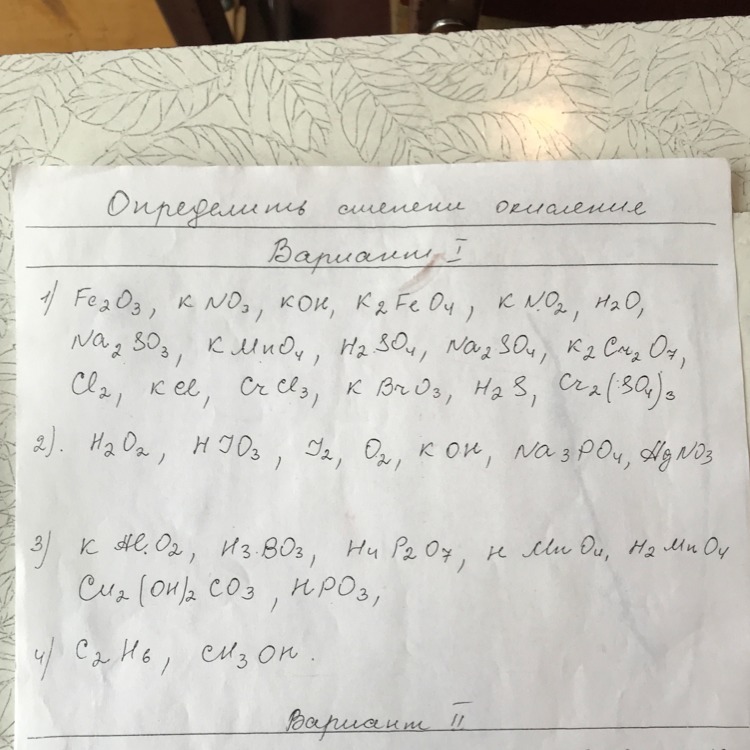 Определить степени окисления
Вариант I
1) Fe2O3, KNO3, KOH, K2FeO4, KNO2, H2O,
Na2SO3, KMnO4, H2SO4, Na2SO4, K2Cr2O7,
Cl2, KCl, CrCl3, KBrO3, H2S, Cr2(SO4)3
2). H2O2, HJO3, J2, O2, KOH, Na3PO4, AgNO3
3) KAlO2, H3BO3, H4P2O7, HMnO4, H2MnO4
Cu2(OH)2CO3, HPO3,
4) C2H6, CH3OH.
Вариант II